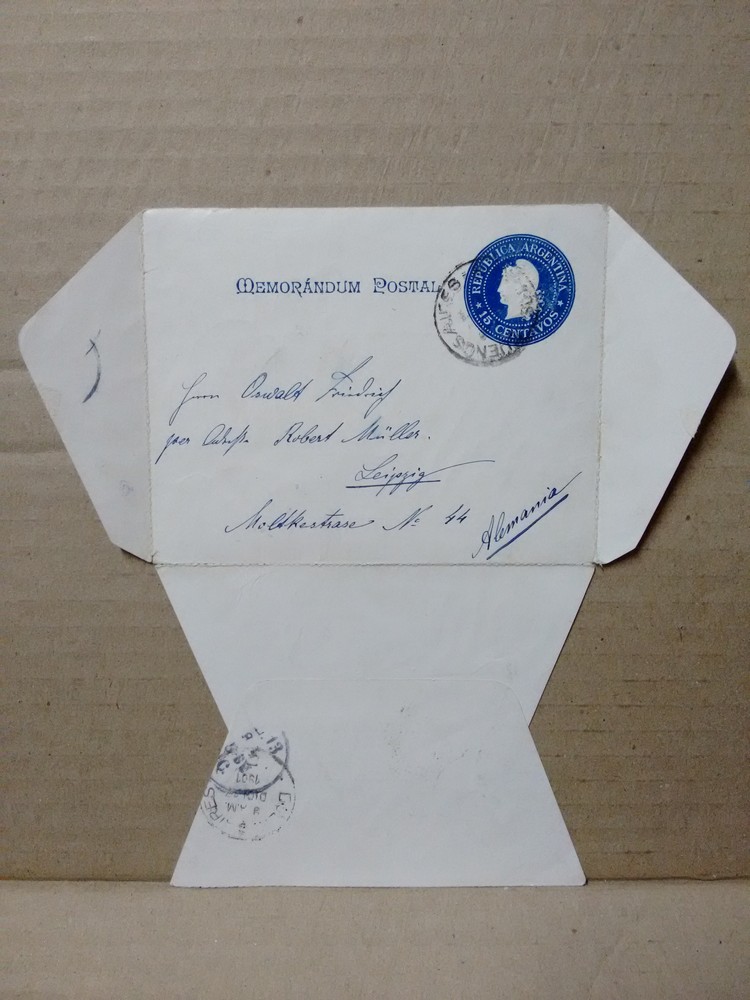 MEMORÁNDUM POSTAL
REPÚBLICA ARGENTINA
15 CENTAVOS
BUENOS AIRES
Herrn Oswalt Friedrich
per Adresse Robert Müller.
Leipzig
Moltkestrase No 44
Alemania
13
1901
AM